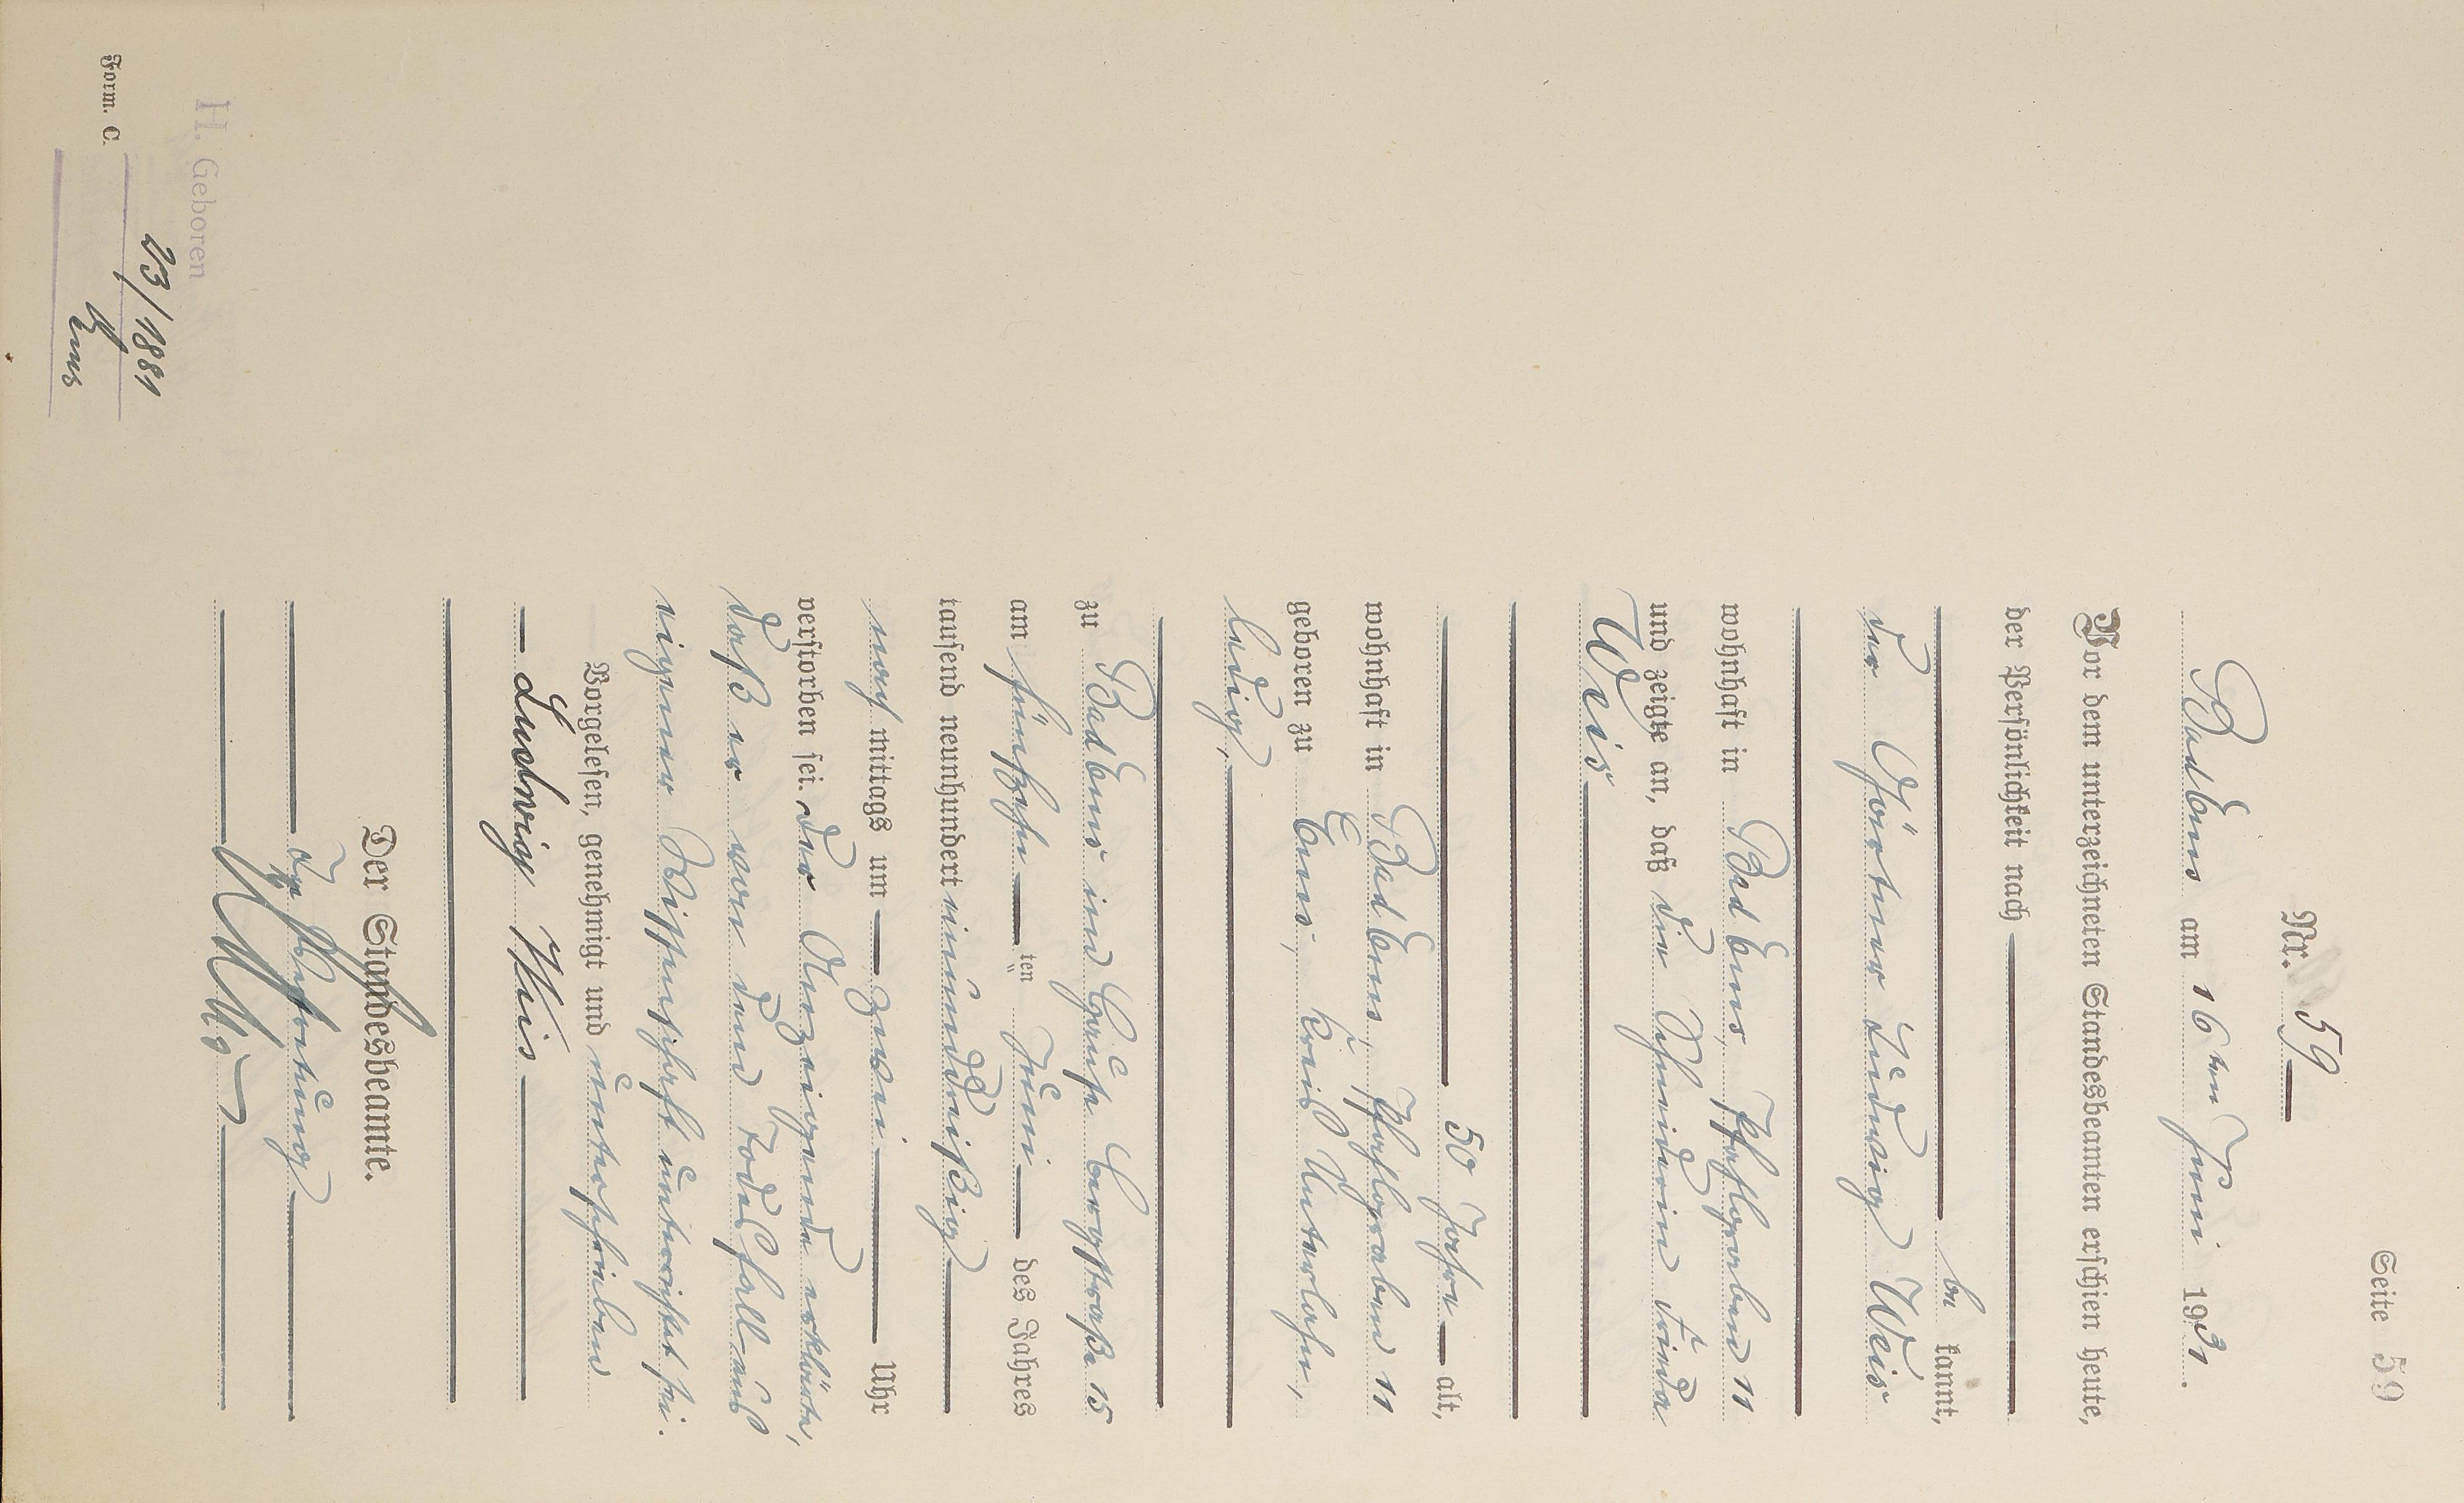 Seite 59
Nr. 59
Bad Ems am 16ten Juni 1931.
Vor dem unterzeichneten Standesbeamten erschien heute,
der Persönlichkeit nach
be kannt,
der Gärtner Ludwig Weis
wohnhaft in Bad Ems, Pfahlgraben 11
und zeigte an, daß die Schneiderin Frieda
Weis
50 Jahre alt,
wohnhaft in Bad Ems, Pfahlgraben 11
geboren zu Ems, Kreis Unterlahn,
ledig,
zu Bad Ems im Hause Bergstraße 15
am fünfzehn ten Juni des Jahres
tausend neunhundert einunddreißig
nach mittags um zwei Uhr
verstorben sei. Der Anzeigende erklärte,
daß er von dem Todesfall aus
eigener Wissenschaft unterrichtet sei.
Vorgelesen, genehmigt und unterschrieben
Ludwig Weis
Der Standesbeamte.
In Vertretung
H. Geboren
23/1881
Ems
Form. C.